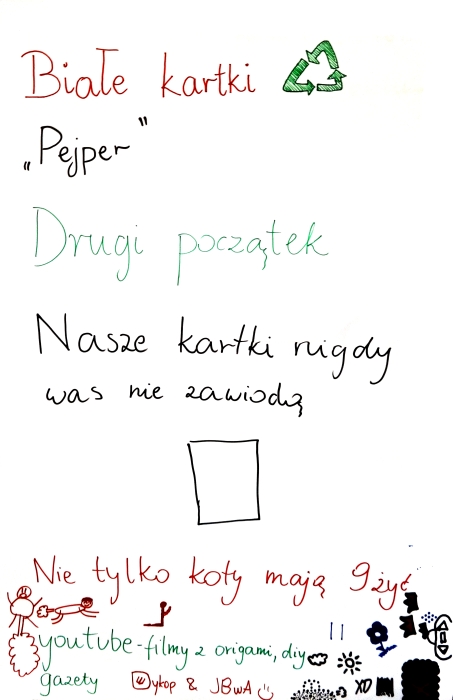 Białe kartki
„Pejper"
Drugi początek
Nasze kartki nigdy
was nie zawiodą
Nie tylko koty mają 9 żyć
youtube - filmy z origami, diy
gazety
Wykop & JBwA
XD